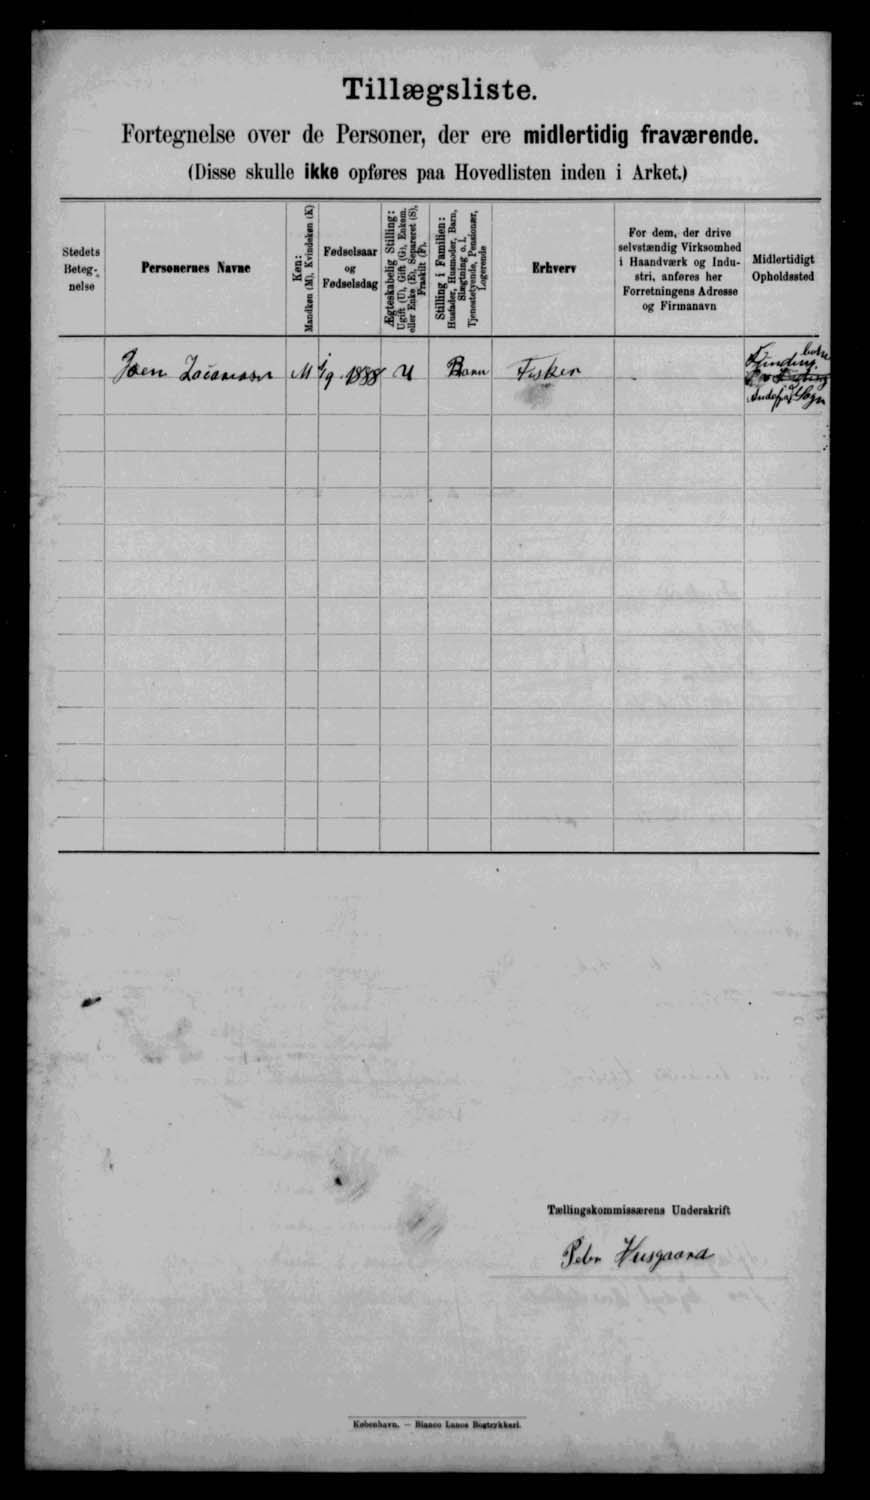 Tillægsliste.
Fortegnelse over de Personer, der ere midlertidig fraværende.
(Disse skulle ikke opføres paa Hovedlisten inden i Arket.)
Stedets
Beteg-
nelse
Personernes Navne
Køn:
Mandkøn (M), Kvindekøn (K)
Fødselsaar
og
Fødselsdag
Ægteskabelig Stilling:
Ugift (U), Gift (G), Enkem.
eller Enke (E), Separeret (S),
Fraskilt (F).
Stilling i Familien:
Husfader, Husmoder, Barn,
Slægtning o. l.
Tjenestetyende, Pensionær,
Logerende
Erhverv
For dem, der drive
selvstændig Virksomhed
i Haandværk og Indu-
stri, anføres her
Forretningens Adresse
og Firmanavn
Midlertidigt
Opholdssted
Joen Zacarasen M 1888 U Barn Fisker
Sogn
Tællingskommissærens Underskrift
Peter Husgaard
København. — Bianco Lunos Bogtrykkeri.